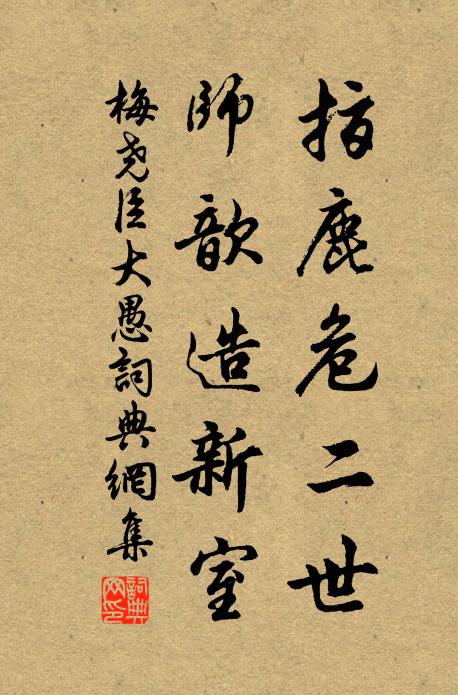 指鹿危二世
師歆造新室
梅尧臣大愚詞典網集
詞典網印